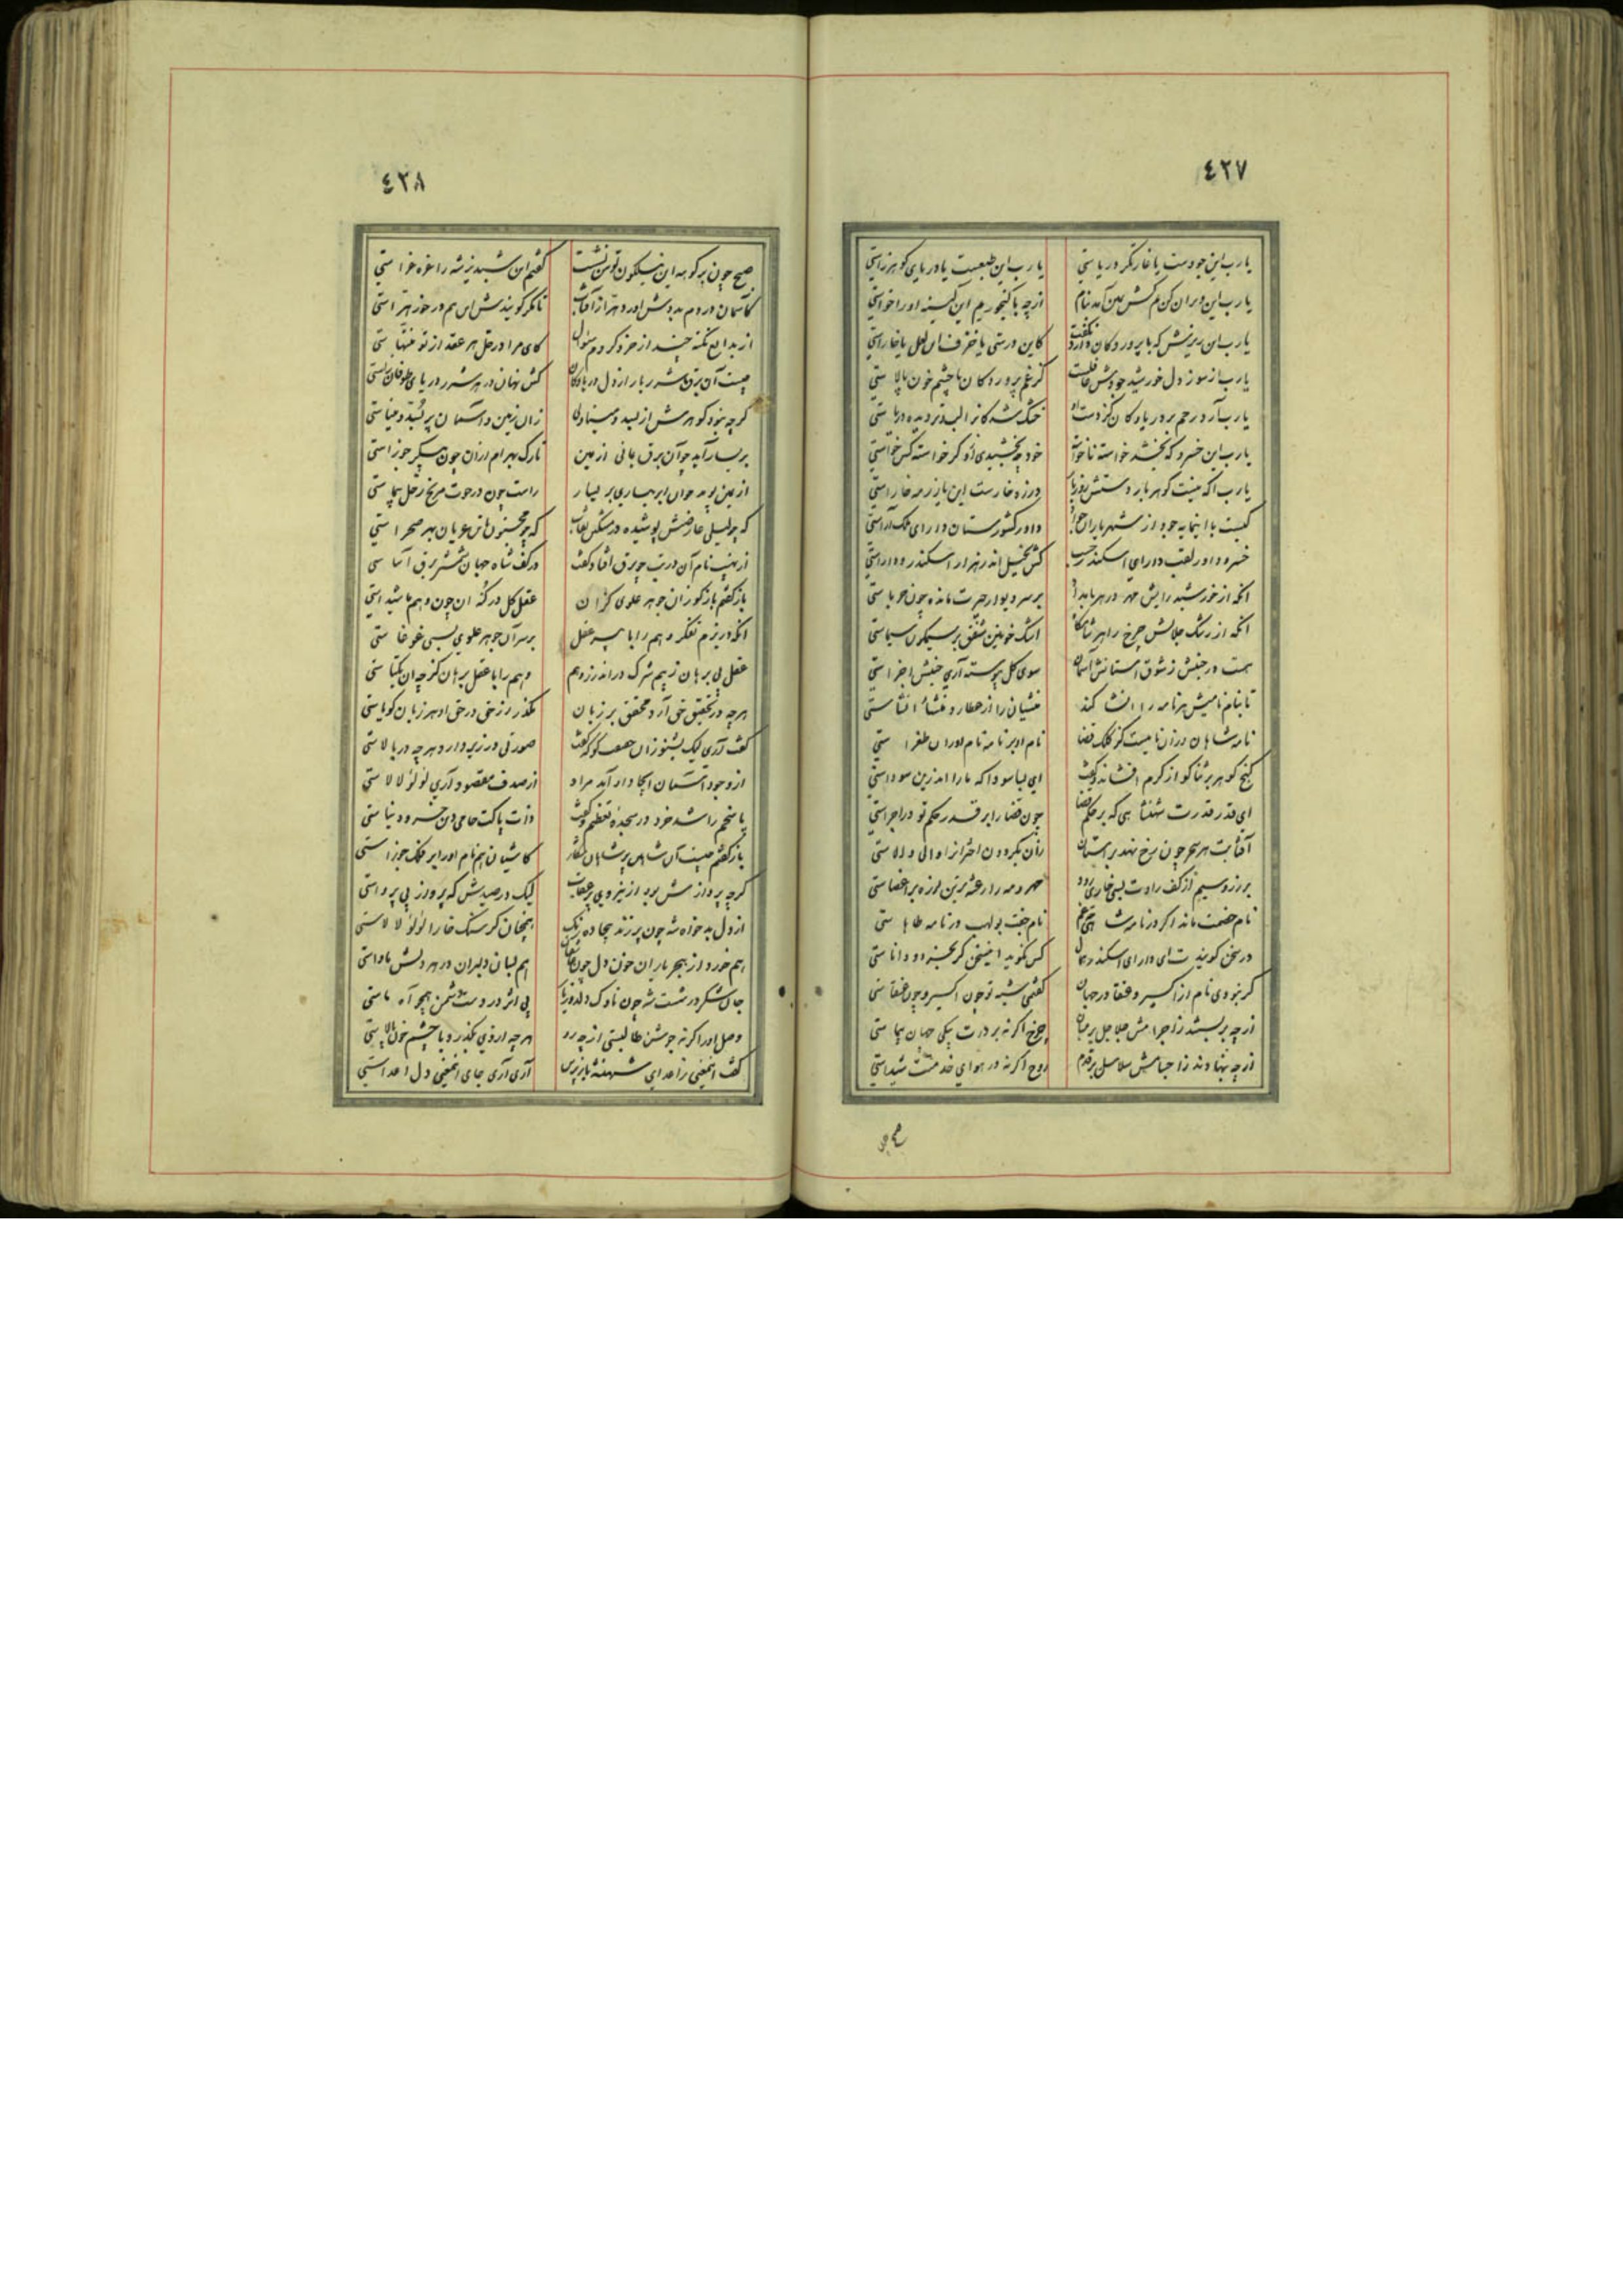 ٤٢٧
یا رب این جودست یا غارتگر دریاستی یا رب این طبعست یا دریای گوهرزاستی
یا رب این ویران کن آمد بنام از چه با گنجور یم این کینه او را خواستی
یا رب این ریزش که با پرورد کان کاین درستی یا خزف این لعل یا خاراستی
یا رب از سوز دل خورشید جودش کز غم پرورد کان با چشم خون پالاستی
یا رب آرد رحم بر دریا و کان کز دست او خشک شد کان را لب و تر دیده دریاستی
یا رب این خسرو که بخشد خواسته ناخواسته خود چه بخشیدی گر خواسته کس خواستی
یا رب اکه نیست گوهربار دستش روز بار ورزه خارست این یا زر مه خاراستی
کیست با اینمایه جود از شهریاران جز داور کشورستان دارای ملک آراستی
خسرو داور لقب دارای اسکندر حسب کش بخیل اندر هزار اسکندر و داراستی
آنکه از خورشید رایش مهر در هر بامداد بر سر دیوار حیرت مانده چون حرباستی
آنکه از رشک جلالش چرخ را هر شامگاه اشک خونین شفق بر سیمگون سیماستی
هست در جنبش ز شوق آستانش آسمان سوی کل پیوسته آری جنبش اجزاستی
تا بنام نامیش هر نامه را انشا کند منشیان را از عطارد منشاء انشاستی
نامه شاهان در آن نامیست کز کلک قضا نام او بر نامه نام اوران طغراستی
گنج گوهر بر ثناگو از کرم افشاند و گفت ای بسا سودا که ما را اندرین سوداستی
ای قدر قدرت شهنشاهی که بر حکم قضا چون قضا را بر قدر حکم تو در اجراستی
آفتابت هر سحر چون رخ نهد بر آستان زان بگردون اختران را والی و والاستی
بر زر و سیم از کف رادت بسی خواری رود مهر و مه را رعشه بر تن لرزه بر اعضاستی
نام خصمت ماند اگر در نامه شاهی چه غم نام جفت بولهب در نامه طاهاستی
در سخن گویند ت ای دارای اسکندر همال کس نگوید اینسخن گر بخرد و داناستی
گر نبودی نام از اکسیر و عنقا در جهان گفتمی شبه تو چون اکسیر و چون عنقاستی
از چه بربستند ز اجرامش جلاجل بر میان چرخ اگر نه بر درت پیکی جهان پیماستی
از چه بنهادند ز اجسامش سلاسل بر قدم روح اگر نه در هوای خدمتت شیداستی
٤٢٨
صبح چون بر کوهه این نیلگون توسن نشست گفتم این شبدیز شه را غره غراستی
کآسمان در دم بدوش اورد از آفتاب تا مگر گویندش این هم در خور هراستی
از بدایع نکته چند از خرد کردم سئوال کای مرا در حل هر عقد از تو منتهاستی
چیست آن برق شرربار از دل دریا و کان کش نهان در هر شرر دریای طوفان زاستی
گرچه نبود گوهرش از بسد و مینا ولی زان زمین و آسمان پر بسد و میناستی
بر یسار آید چو آن برق یمانی از یمین تارک بهرام ازان چون پیکر جوزاستی
از یمین پوید چو آن ابر بهاری بر یسار راست چون در حوت مریخ زحل سیماستی
گه چو لیلی عارضش پوشیده در مشکین نقاب گه چو مجنون تن عریان بهر صحراستی
از نهیب نام آن در تب چو برق افتاد و گفت در کف شاه جهان شمشیر برق آساستی
باز گفتم باز گو زان جوهر علوی کزان عقل کل در کنه آن چون وهم ما شیداستی
آنکه در بزم تفکر وهم را با پیر عقل بر سر آن جوهر علوی بسی غوغاستی
عقل بی برهان ز بیم شرک در اندرز وهم وهم را با عقل برهان کز چه ان یکتاستی
هرچه در تحقیق حق آرد محقق بر زبان نگذرد زحق در حق او هر زبان گویاستی
گفت آری لیک بشنو زان حقیقت گو که گفت صورتی در زیر دارد هرچه در بالاستی
از وجود آسمان ایجاد او آمد مراد از صدف مقصود آری لؤلؤ لالاستی
پاسخم را شد خرد در سجده تعظیم و گفت ذات پاکت حامی دین خسرو دنیاستی
باز گفتم چیست آن شاهین شاهان شکار کاشیان هم نام او را بر فلک جوزاستی
گرچه پروازش بود از نیروی پر عقاب لیک در صیدش که پرواز بی پرواستی
از دل بدخواه شه چون پر زند بیجاده رنگ همچنان کز سنگ خارا لؤلؤ لالاستی
هم خورد از هجر یاران خون دل چون عاشقان هم بسان دلبران در هر دلش ماواستی
جان شکر در شست شه چون ناوک دلدوز یار بی اثر در دست دشمن همچو آه ماستی
وصل او را گر نه جوشن طالبستی از چه رو هرچه از وی بگذرد با چشم خون پالاستی
گفت اینمعنی ز اعدای شهنشه باز پرس آری آری جای اینمعنی دل اعداستی